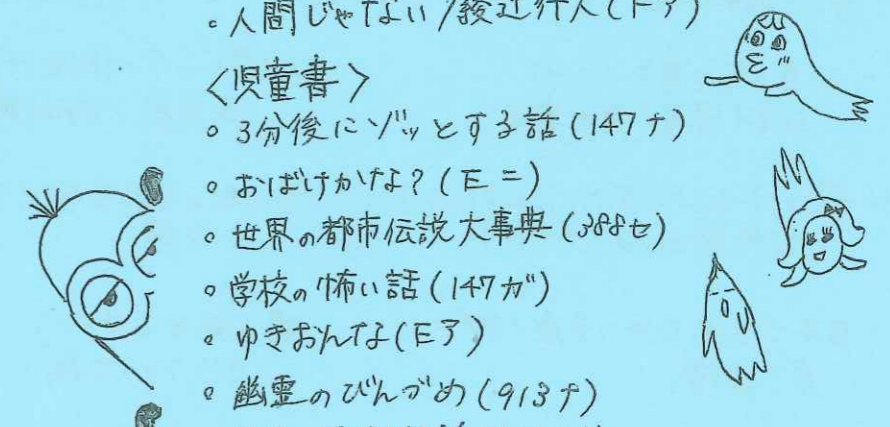 。人間じゃない/綾辻行人(Fア)
<児童書>
。3分後にゾッとする話(147ナ)
。おばけかな?(Eニ)
。世界の都市伝説大事典(388セ)
。学校の怖い話(147ガ)
。ゆきおんな(Eア)
。幽霊のびんづめ(913ナ)